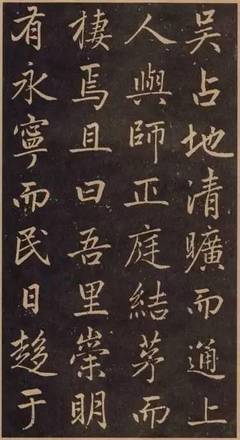 吴占地清曠而通上
人與師正庭結茅而
棲焉且曰吾里崇明
有永寧而民日趍于